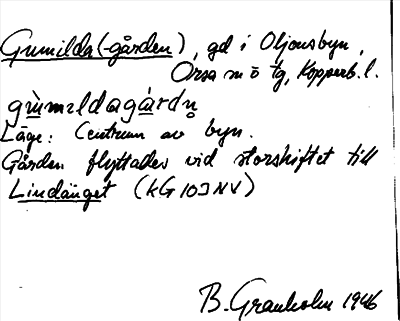 Gumilda (-gården), gd i Oljonsbyn,
Orsa sn o tg, Kopperb. l.
gùmɛldagárdn̥
Läge: Centrum av byn.
Gården flyttades vid storskiftet till
Lindänget (KG 103 NV)
B. Granholm 1946